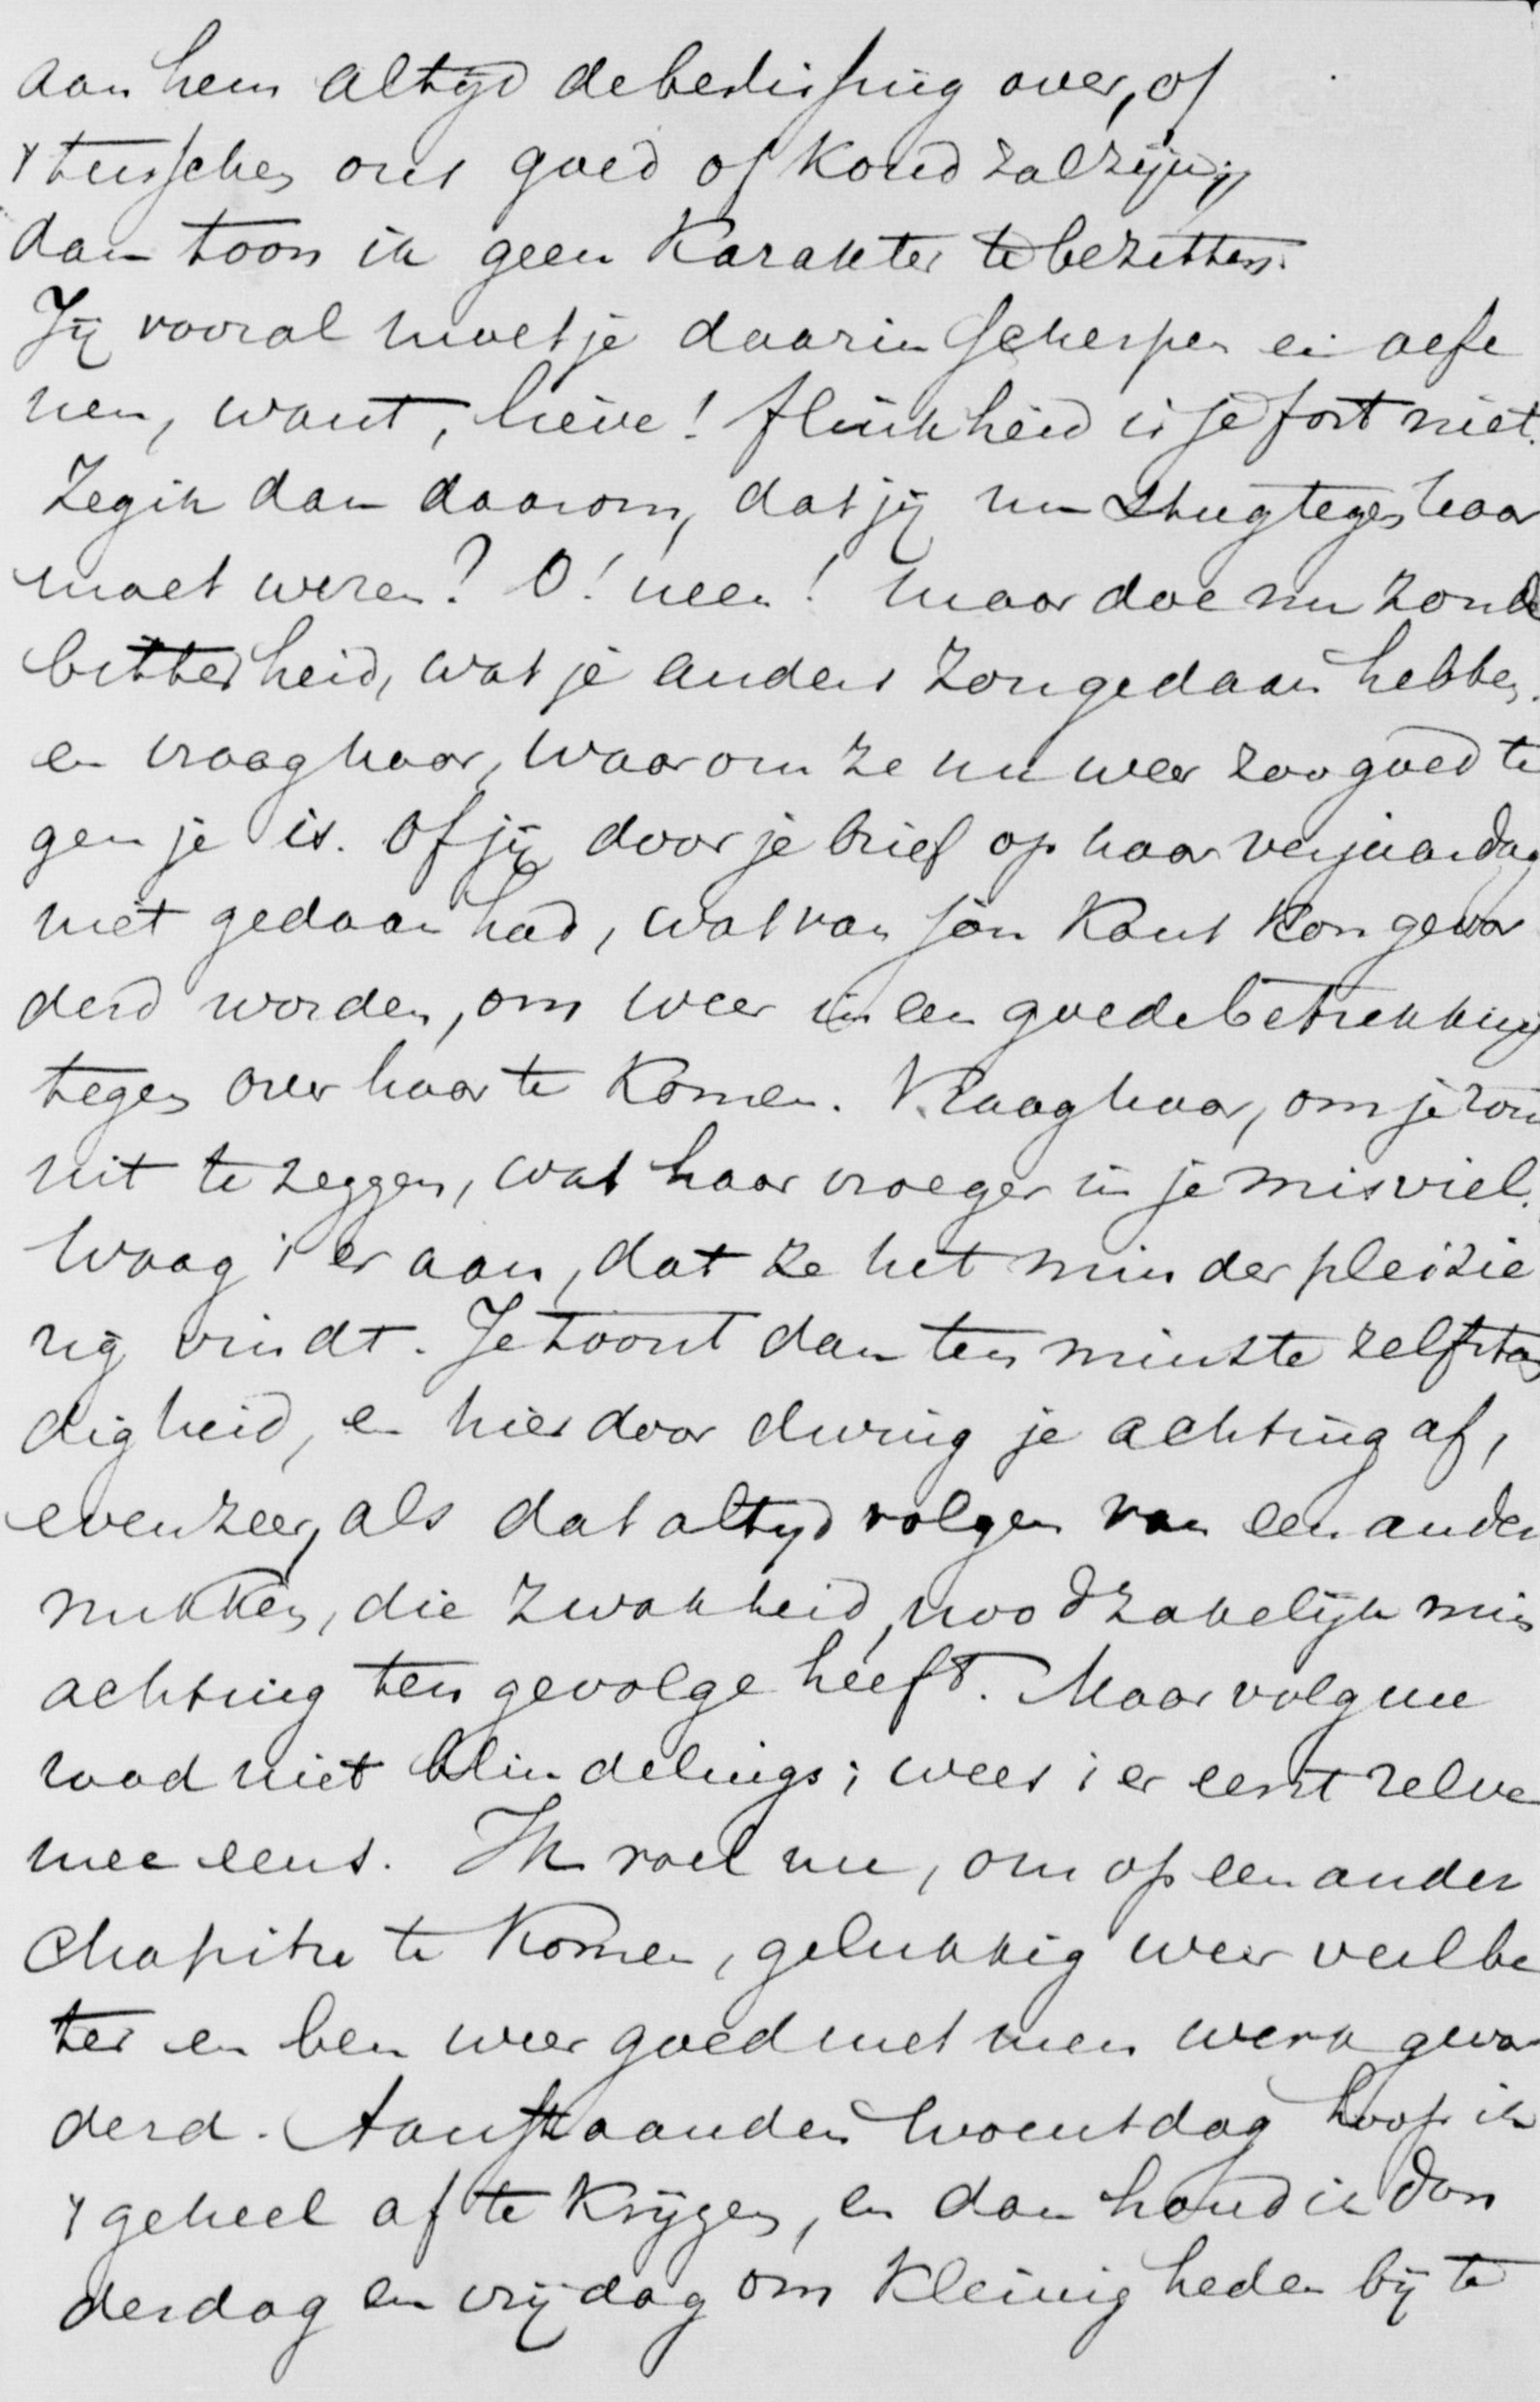 aan hem altyd de beslissing over, of
't tusschen ons goed of koud zal zijn,
dan toon ik geen karakter te bezitten.
Jij vooral moet je daarin scherpen en oefe
nen, want, lieve! flinkheid is je fort niet.
Zeg ik dan daarom, dat jij nu stug tegen haar
moet wezen? O! neen! maar doe nu zonde
bitterheid, wat je anders zou gedaan hebben.
en vraag haar, waarom ze nu weer zoo goed te
gen je is. Of jij door je brief op haar verjaardag
niet gedaan had, wat van jou kant kon gevor
derd worden, om weer in een goede betrekking
tegen over haar te komen. Vraag haar, om je ron
uit te zeggen, wat haar vroeger in je misviel.
Waag 'i er aan, dat ze het minder pleizie
rig vindt. Je toont dan ten minste zelfstan
digheid, en hierdoor dwing je achting af,
evenzeer, als dat altyd volgen van een ander
nukken, die zwakheid, noodzakelijk min
achting ten gevolge heeft. Maar volg me
raad niet blindelings; wees 'i er eerst zelve
mee eens. Ik voel me, om op een ander
chapitre te komen, gelukkig weer veel be
ter en ben weer goed met men werk gevor
derd. Aanstaanden Woensdag hoop ik
't geheel af te krijgen, en dan houd ik Don
derdag en vrijdag om kleinigheden bij te